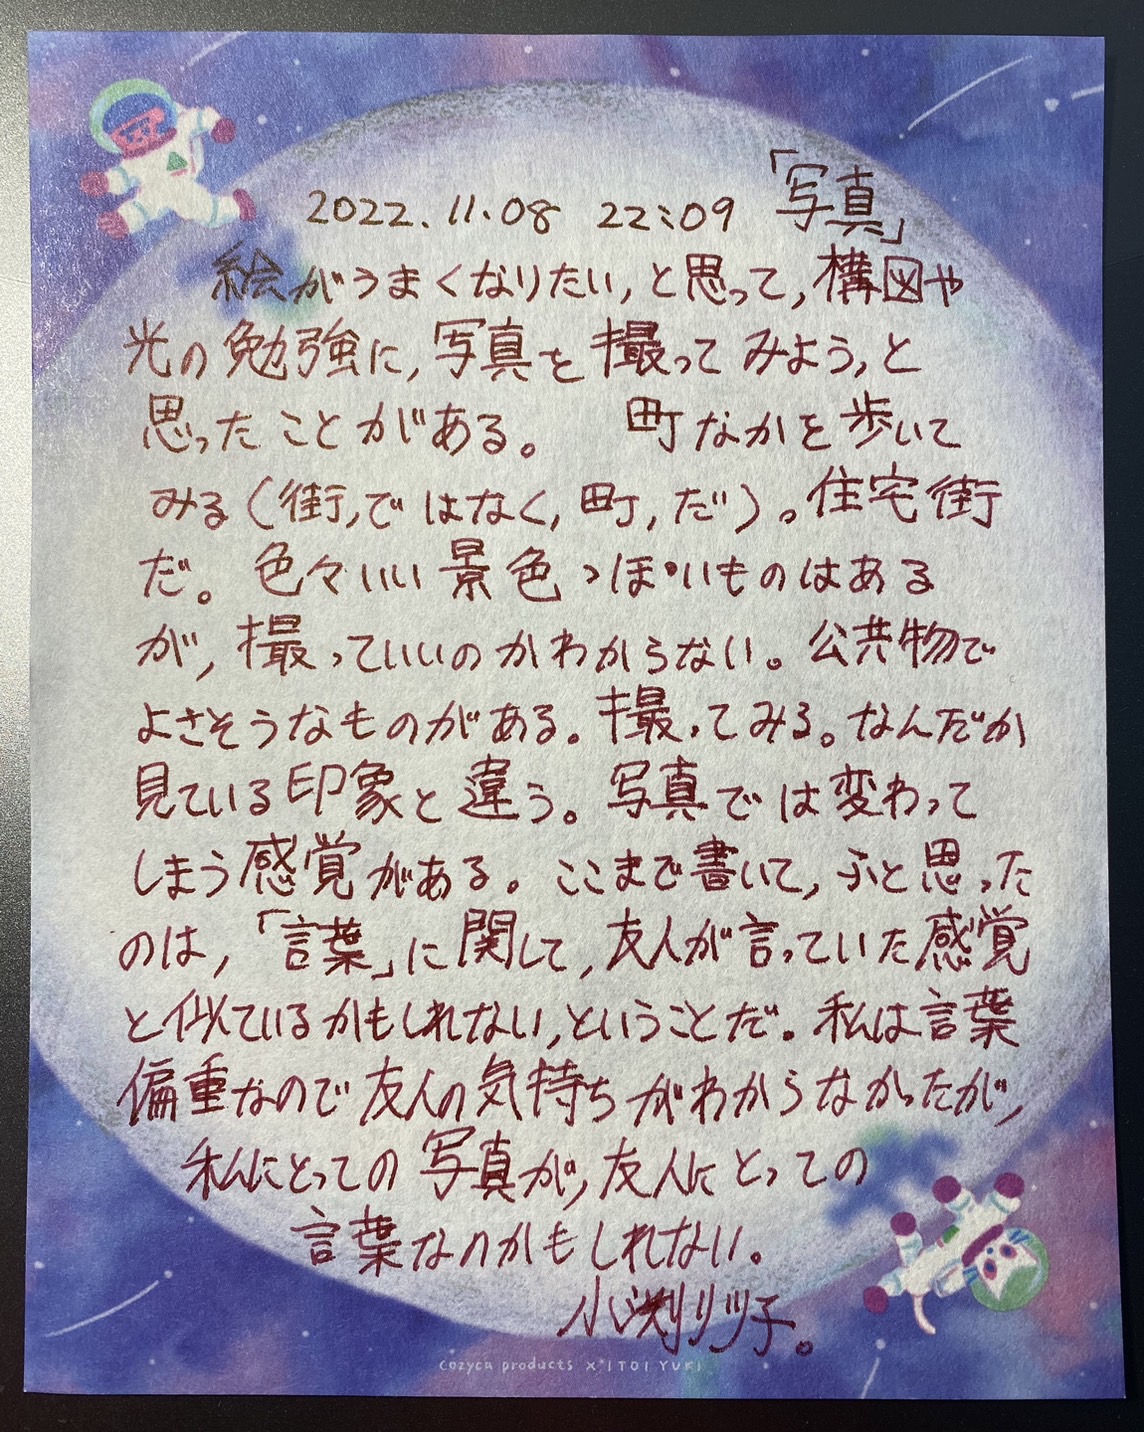 2022.11.08 22:09 「写真」
絵がうまくなりたい,と思って,構図や
光の勉強に,写真を撮ってみよう,と
思ったことがある。 町なかを歩いて
みる(街,ではなく,町,だ)。住宅街
だ。色々いい景色っぽいものはある
が,撮っていいのかわからない。公共物で
よさそうなものがある。撮ってみる。なんだか
見ている印象と違う。写真では変わって
しまう感覚がある。ここまで書いて,ふと思った
のは,「言葉」に関して,友人が言っていた感覚
と似ているかもしれない,ということだ。私は言葉
偏重なので友人の気持ちがわからなかったが,
私にとっての写真が,友人にとっての
言葉なのかもしれない。
小渕リツ子。
cozyca products × ITOI YUKI